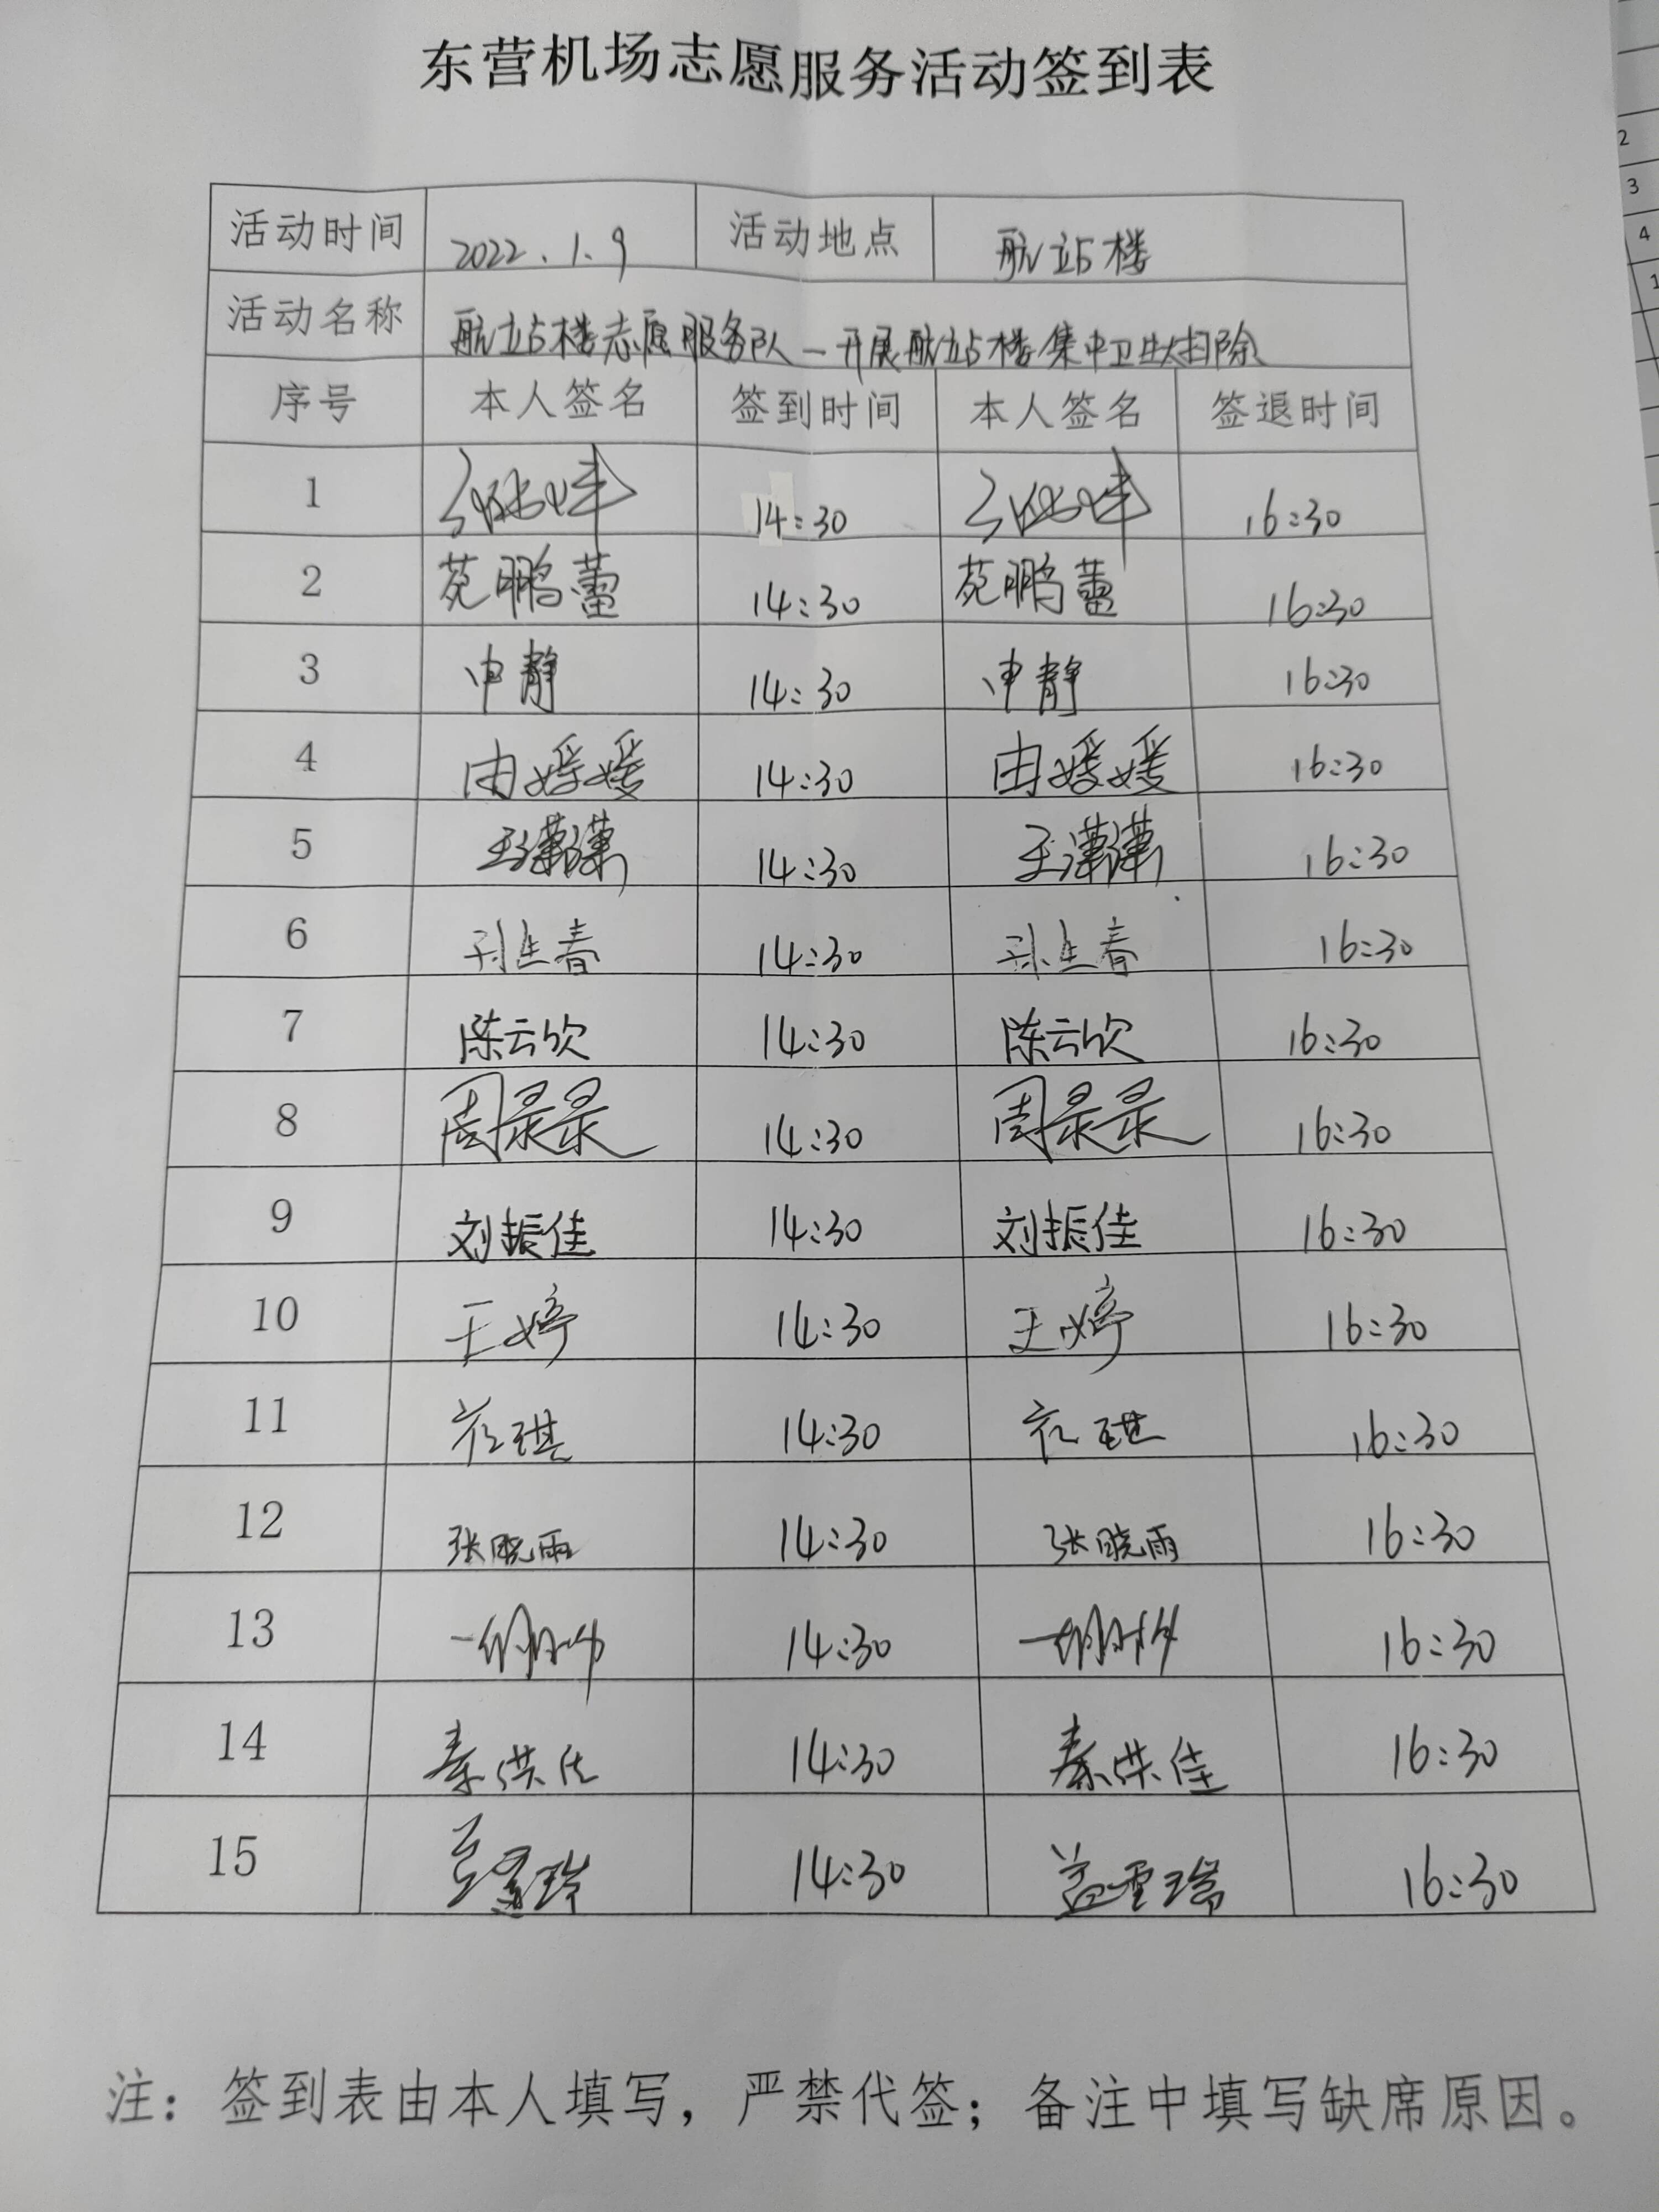 东营机场志愿服务活动签到表
活动时间 2022.1.9 活动地点 航站楼
活动名称 航站楼志愿服务队—开展航站楼集中卫生大扫除
序号 本人签名 签到时间 本人签名 签退时间
1 14:30 16:30
2 苑鹏蕾 14:30 苑鹏蕾 16:30
3 申静 14:30 申静 16:30
4 由媛媛 14:30 由媛媛 16:30
5 王潇潇 14:30 王潇潇 16:30
6 孙生春 14:30 孙生春 16:30
7 陈云欣 14:30 陈云欣 16:30
8 周录录 14:30 周录录 16:30
9 刘振佳 14:30 刘振佳 16:30
10 王婷 14:30 王婷 16:30
11 琪 14:30 琪 16:30
12 张晓雨 14:30 张晓雨 16:30
13 14:30 16:30
14 秦洪佳 14:30 秦洪佳 16:30
15 14:30 16:30
注：签到表由本人填写，严禁代签；备注中填写缺席原因。
2
3
4
1